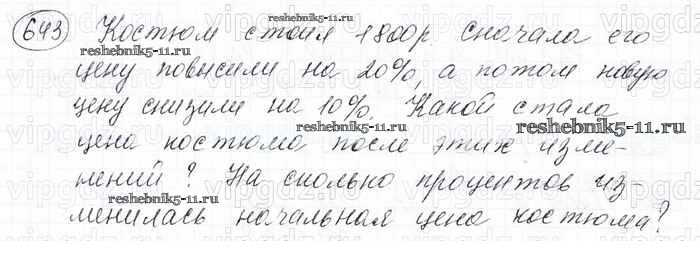 643 Костюм стоил 1800р сначала его
reshebnik5-11.ru
цену повысили на 20%, а потом новую
цену снизили на 10%. Какой стала
reshebnik5-11.ru
reshebnik5-11.ru
цена костюма после этих изме-
нений? На сколько процентов из-
reshebnik5-11.ru
менилась начальная цена костюма?